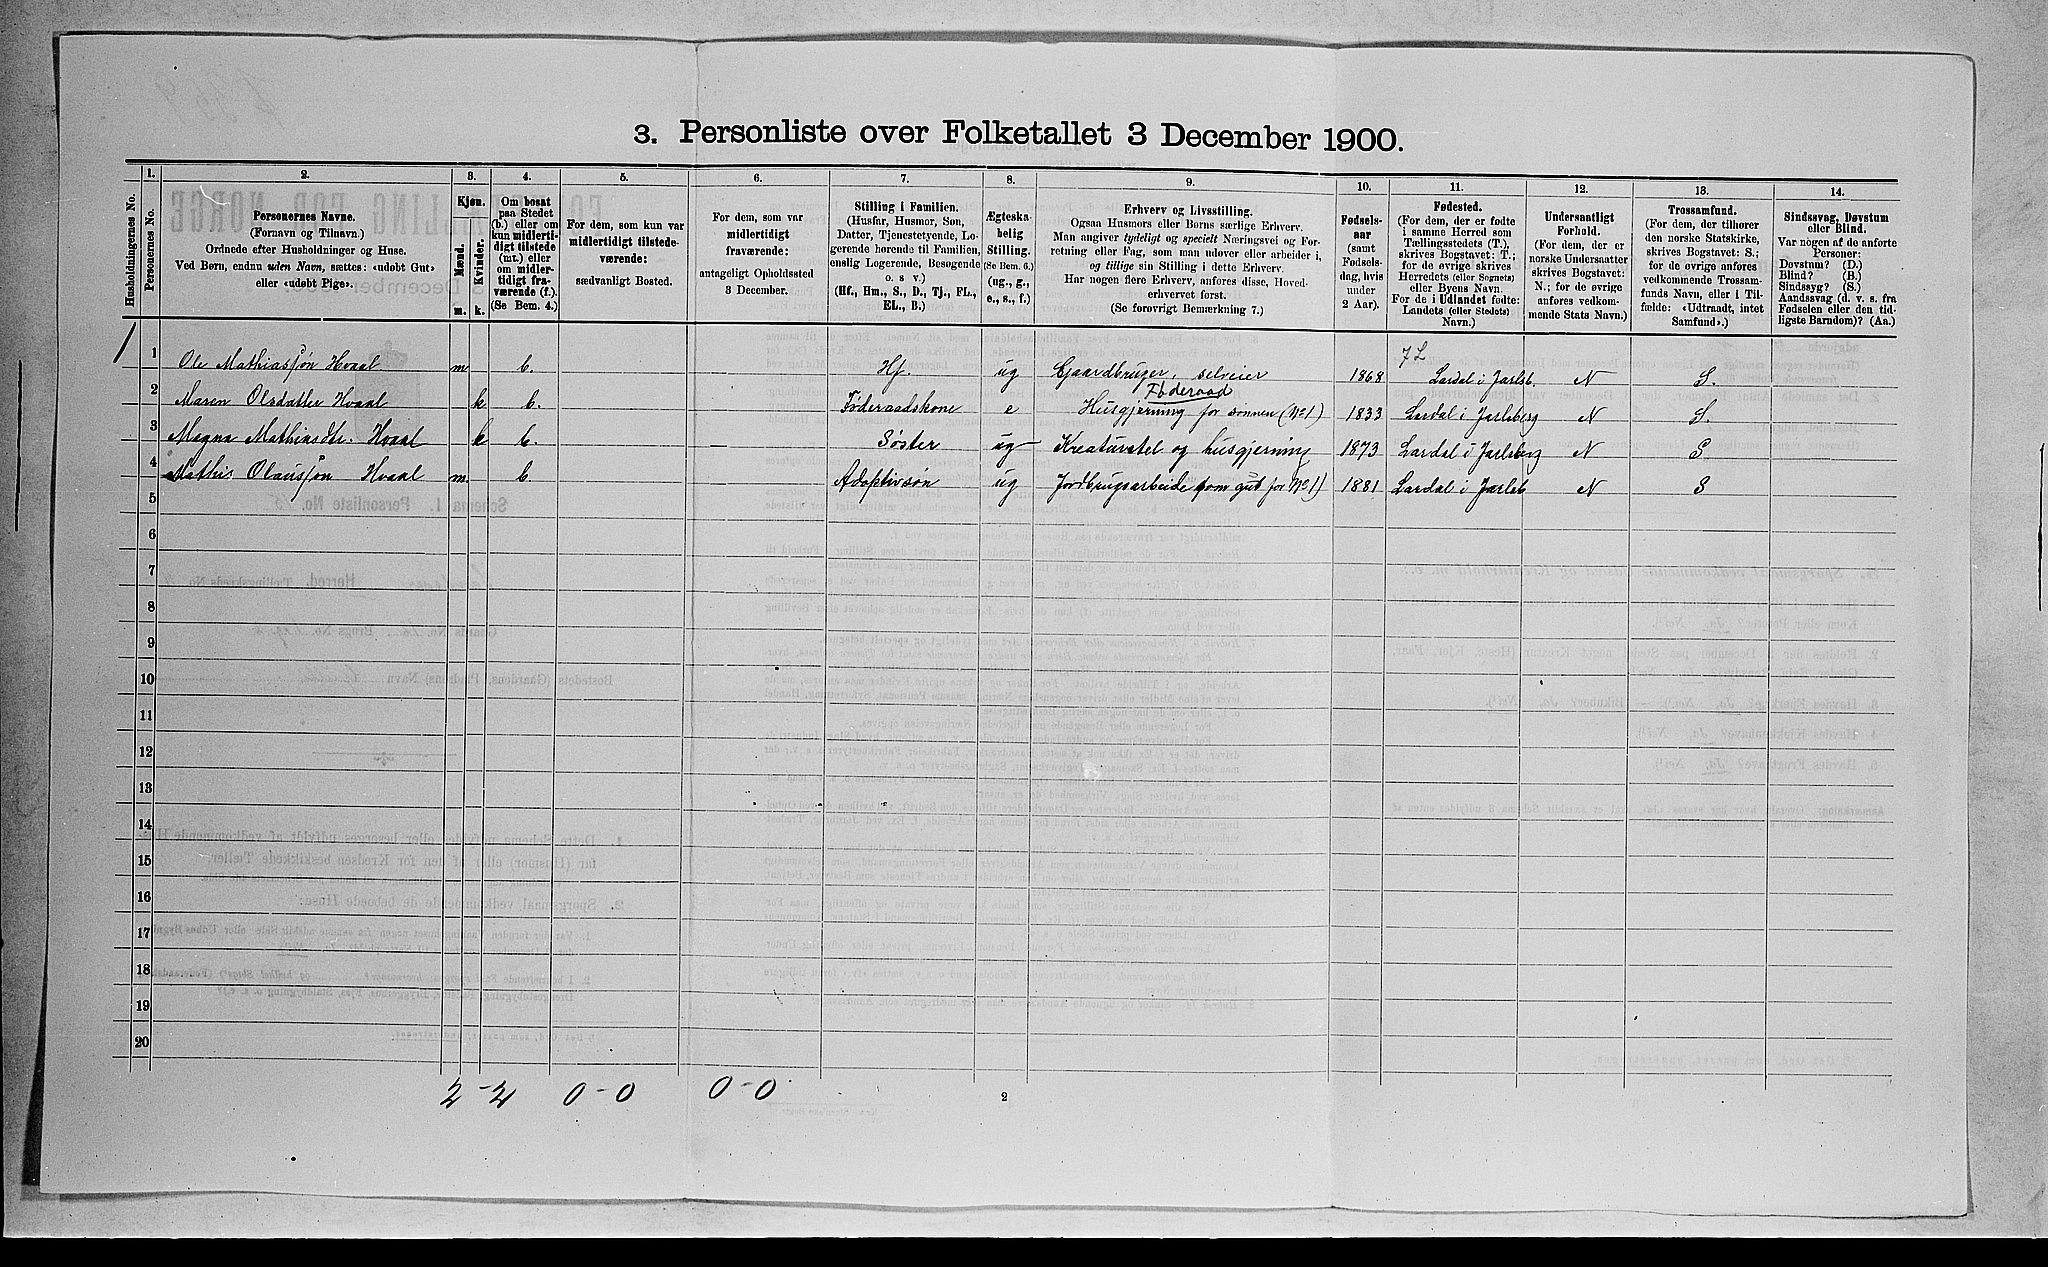 3. Personliste over Folketallet 3 December 1900.
1. 2. 3. 4. 5. 6. 7. 8. 9. 10. 11. 12. 13. 14.
Husholdningernes No.
Personernes No.
Personernes Navne.
(Fornavn og Tilnavn.)
Ordnede efter Husholdninger og Huse.
Ved Børn, endnu uden Navn, sættes: «udøbt Gut»
eller «udøbt Pige».
Kjøn.
Mænd.
Kvinder.
m. k.
Om bosat
paa Stedet
(b.) eller om
kun midlerti-
digt tilstede
(mt.) eller
om midler-
tidigt fra-
værende (f.).
(Se Bem. 4.)
For dem, som kun var
midlertidigt tilstede-
værende:
sædvanligt Bosted.
For dem, som var
midlertidigt
fraværende:
antageligt Opholdssted
3 December.
Stilling i Familien.
(Husfar, Husmor, Søn,
Datter, Tjenestetyende, Lo-
gerende hørende til Familien,
enslig Logerende, Besøgende
o. s. v.)
(Hf., Hm., S., D., Tj., FL.,
EL., B.)
Ægteska-
belig
Stilling.
(Se Bem. 6.)
(ug., g.,
e., s., f.)
Erhverv og Livsstilling.
Ogsaa Husmors eller Børns særlige Erhverv.
Man angiver tydeligt og specielt Næringsvei og For-
retning eller Fag, som man udøver eller arbeider i,
og tillige sin Stilling i dette Erhverv.
Har nogen flere Erhverv, anføres disse, Hoved-
erhvervet først.
(Se forøvrigt Bemærkning 7.)
Fødsels-
aar
(samt
Fødsels-
dag, hvis
under
2 Aar).
Fødested.
(For dem, der er fødte
i samme Herred som
Tællingsstedets (T.),
skrives Bogstavet: T.;
for de øvrige skrives
Herredets (eller Sognets)
eller Byens Navn.
For de i Udlandet fødte:
Landets (eller Stedets)
Navn.)
Undersaatligt
Forhold.
(For dem, der er
norske Undersaatter
skrives Bogstavet:
N.; for de øvrige
anføres vedkom-
mende Stats Navn.)
Trossamfund.
(For dem, der tilhører
den norske Statskirke,
skrives Bogstavet: S.;
for de øvrige anføres
vedkommende Trossam-
funds Navn, eller i Til-
fælde: «Udtraadt, intet
Samfund».)
Sindssvag, Døvstum
eller Blind.
Var nogen af de anførte
Personer:
Døvstum? (D.)
Blind? (B.)
Sindssyg? (S.)
Aandssvag (d. v. s. fra
Fødselen eller den tid-
ligste Barndom)? (Aa.)
7 L
1 1 Ole Mathiassøn Hvaal m b. Hf. ug Gaardbruger, selveier 1868 Lardal i Jarlsb. N S.
Føderaad
2 Maren Olsdatter Hvaal k b. — Føderaadskone e Husgjerning for sønnen (No 1) 1833 Lardal i Jarlsberg N S.
3 Magna Mathiasdtr. Hvaal k b. — Søster ug Kreaturstel og husgjerning 1873 Lardal i Jarlsberg N S
4 Mathis Olaussøn Hvaal m. b. Adoptivsøn ug Jordbrugsarbeide som gut for No 1) 1881 Lardal i Jarlsb N S
5
6
7
8
9
10
11
12
13
14
15
16
17
18
19
20
2 - 2 0 - 0 0 - 0
2